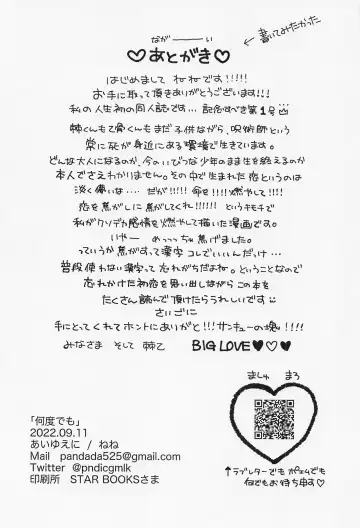 なが——い
♡あとがき♡
↖書いてみたかった
はじめまして ねねです!!!!!
お手に取って頂きありがとうございます!!!
私の人生初の同人誌です… 記念すべき第1号
棘くんも憂くんもまだ子供ながら、呪術師という
常に死が身近にある環境で生きています。
どんな大人になるのか、今のいびつな少年のまま生を終えるのか
本人でさえわかりません。その中で生まれた恋というのは
淡く儚いは… だが!!!! 命を!!!! 燃やして!!!!
恋を焦がしに焦がしてくれ!!!!!! というキモチで
私がクソデカ感情を燃やして描いた漫画です。
いやー めっっっちゃ焦げました。
っていうか焦がすって漢字 コレでいいんだけ…
普段使わない漢字って忘れがちだよね。ということなので
忘れかけた初恋を思い出しながら この本を
たくさん読んで頂けたらうれしいです
さいごに
手にとってくれてホントにありがと!!! サンキューの魂!!!!
みなさま そして 棘乙 BIG LOVE♥♡♥
ましゅ まろ
「何度でも」
2022.09.11
あいゆえに / ねね
Mail pandada525@gmail.com
Twitter @pndicgmlk
印刷所 STAR BOOKSさま
↑ラブレターでも ポエムでも
何でもお待ち申す♡